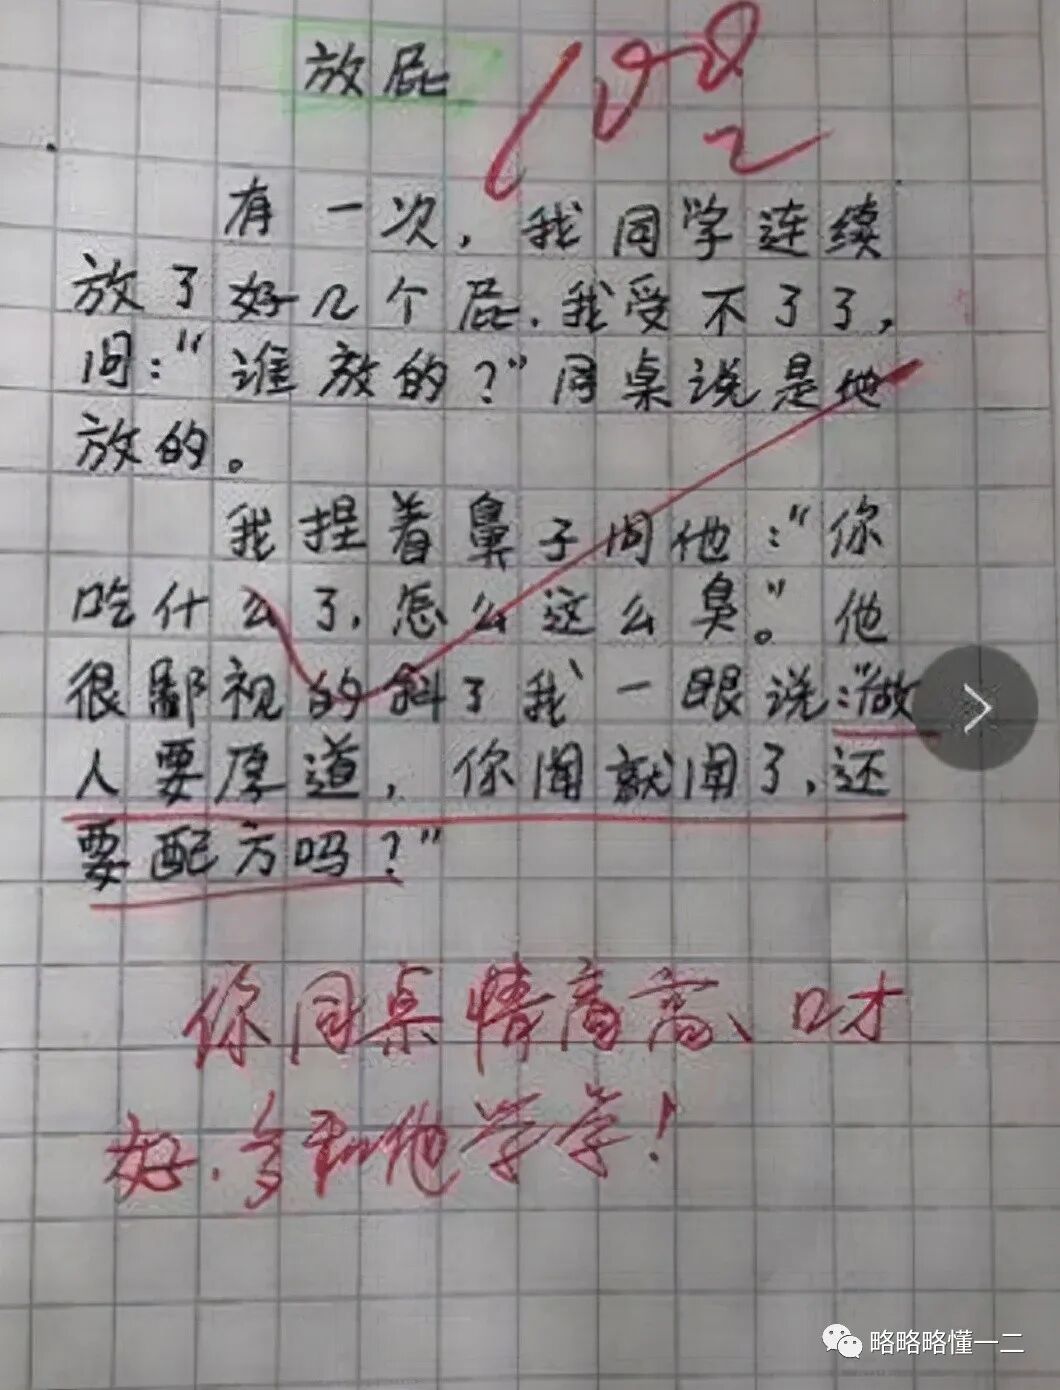 放屁
有一次，我同学连续
放了好几个屁.我受不了了，
问：“谁放的？”同桌说是他
放的。
我捏着鼻子问他：“你
吃什么了，怎么这么臭。”他
很鄙视的斜了我一眼说：“做
人要厚道，你闻就闻了，还
要配方吗？”
你同桌情商高、口才
好.多和他学学！
略略略懂一二